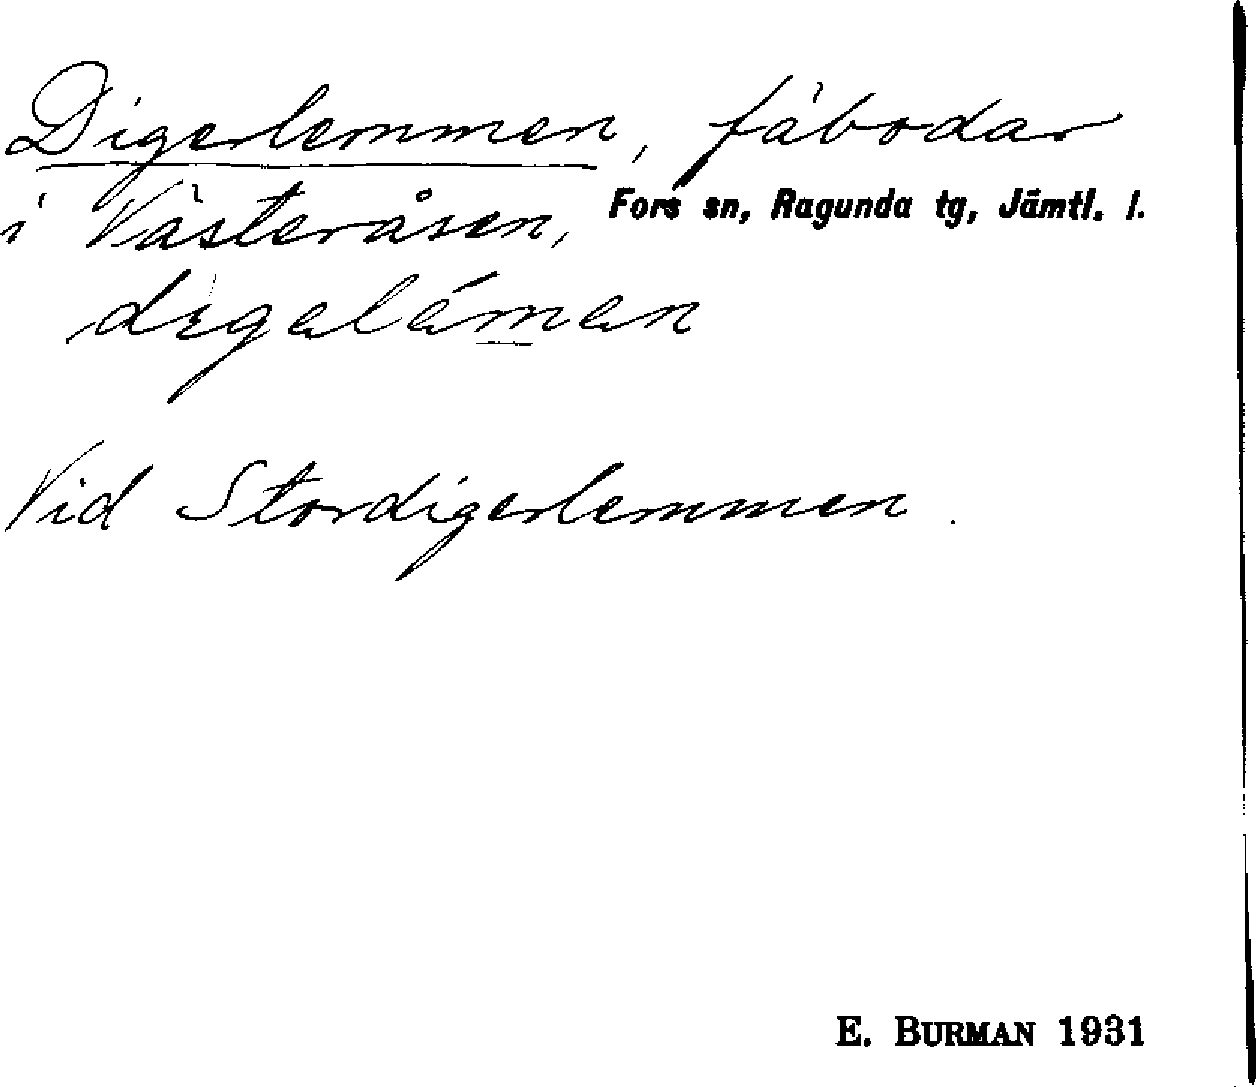 Digerlemmen, fäbodar
i Västeråsen, Fors sn, Ragunda tg, Jämtl. l.
degaláman
Vid Stordigerlemmen.
E. BURMAN 1931